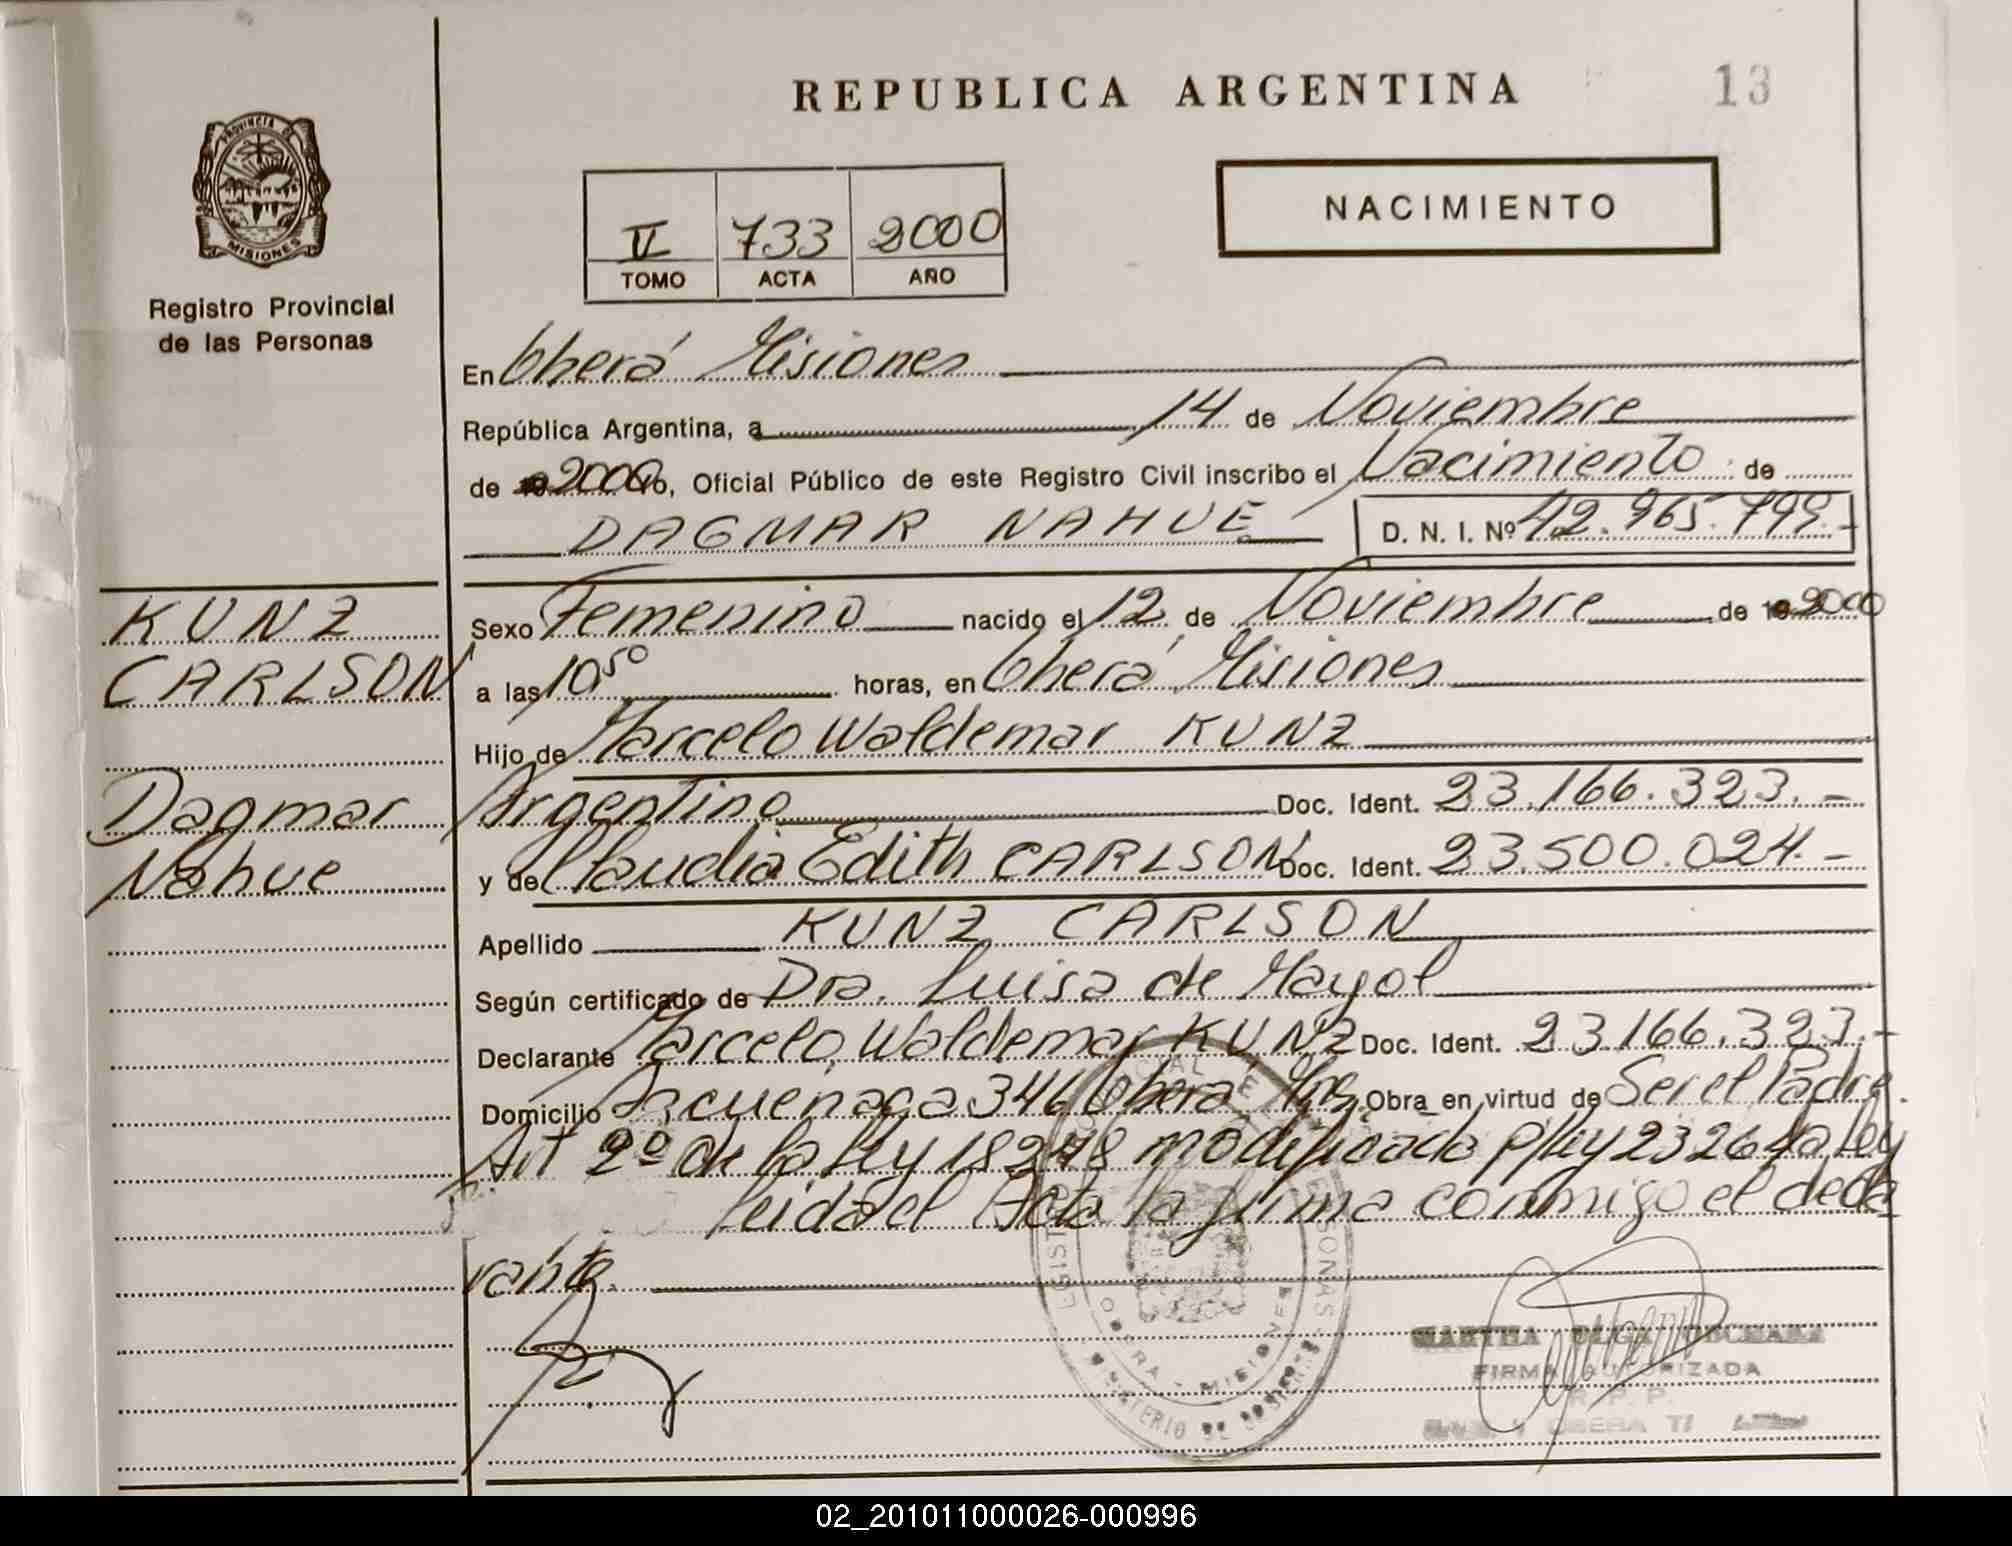 REPUBLICA ARGENTINA
13
PROVINCIA DE
MISIONES
Registro Provincial
de las Personas
V 733 2000
TOMO ACTA AÑO
NACIMIENTO
En Oberá Misiones
República Argentina, a 14 de Noviembre
de 2000 yo, Oficial Público de este Registro Civil inscribo el Nacimiento de
DAGMAR NAHUE D. N. I. Nº 42.965.799.-
KUNZ
CARLSON
Dagmar
Nahue
Sexo Femenino nacido el 12 de Noviembre de 2000
a las 10 50 horas, en Oberá Misiones
Hijo de Marcelo Waldemar KUNZ
Argentino Doc. Ident. 23.166.323.-
y de Claudia Edith CARLSON Doc. Ident. 23.500.024.-
Apellido KUNZ CARLSON
Según certificado de Dra. Luisa de Mayol
Declarante Marcelo Waldemar KUNZ Doc. Ident. 23.166.323.-
Domicilio Azcuenaga 346 Oberá Mnes Obra en virtud de Ser el Padre.
Art 2º de la Ley 18248 modificada p/ley 23264 la ley
leida el Acta la firma conmigo el decla
rante.
OBERA - MISIONES
FIRMA AUTORIZADA
R. P. P.
02_201011000026-000996